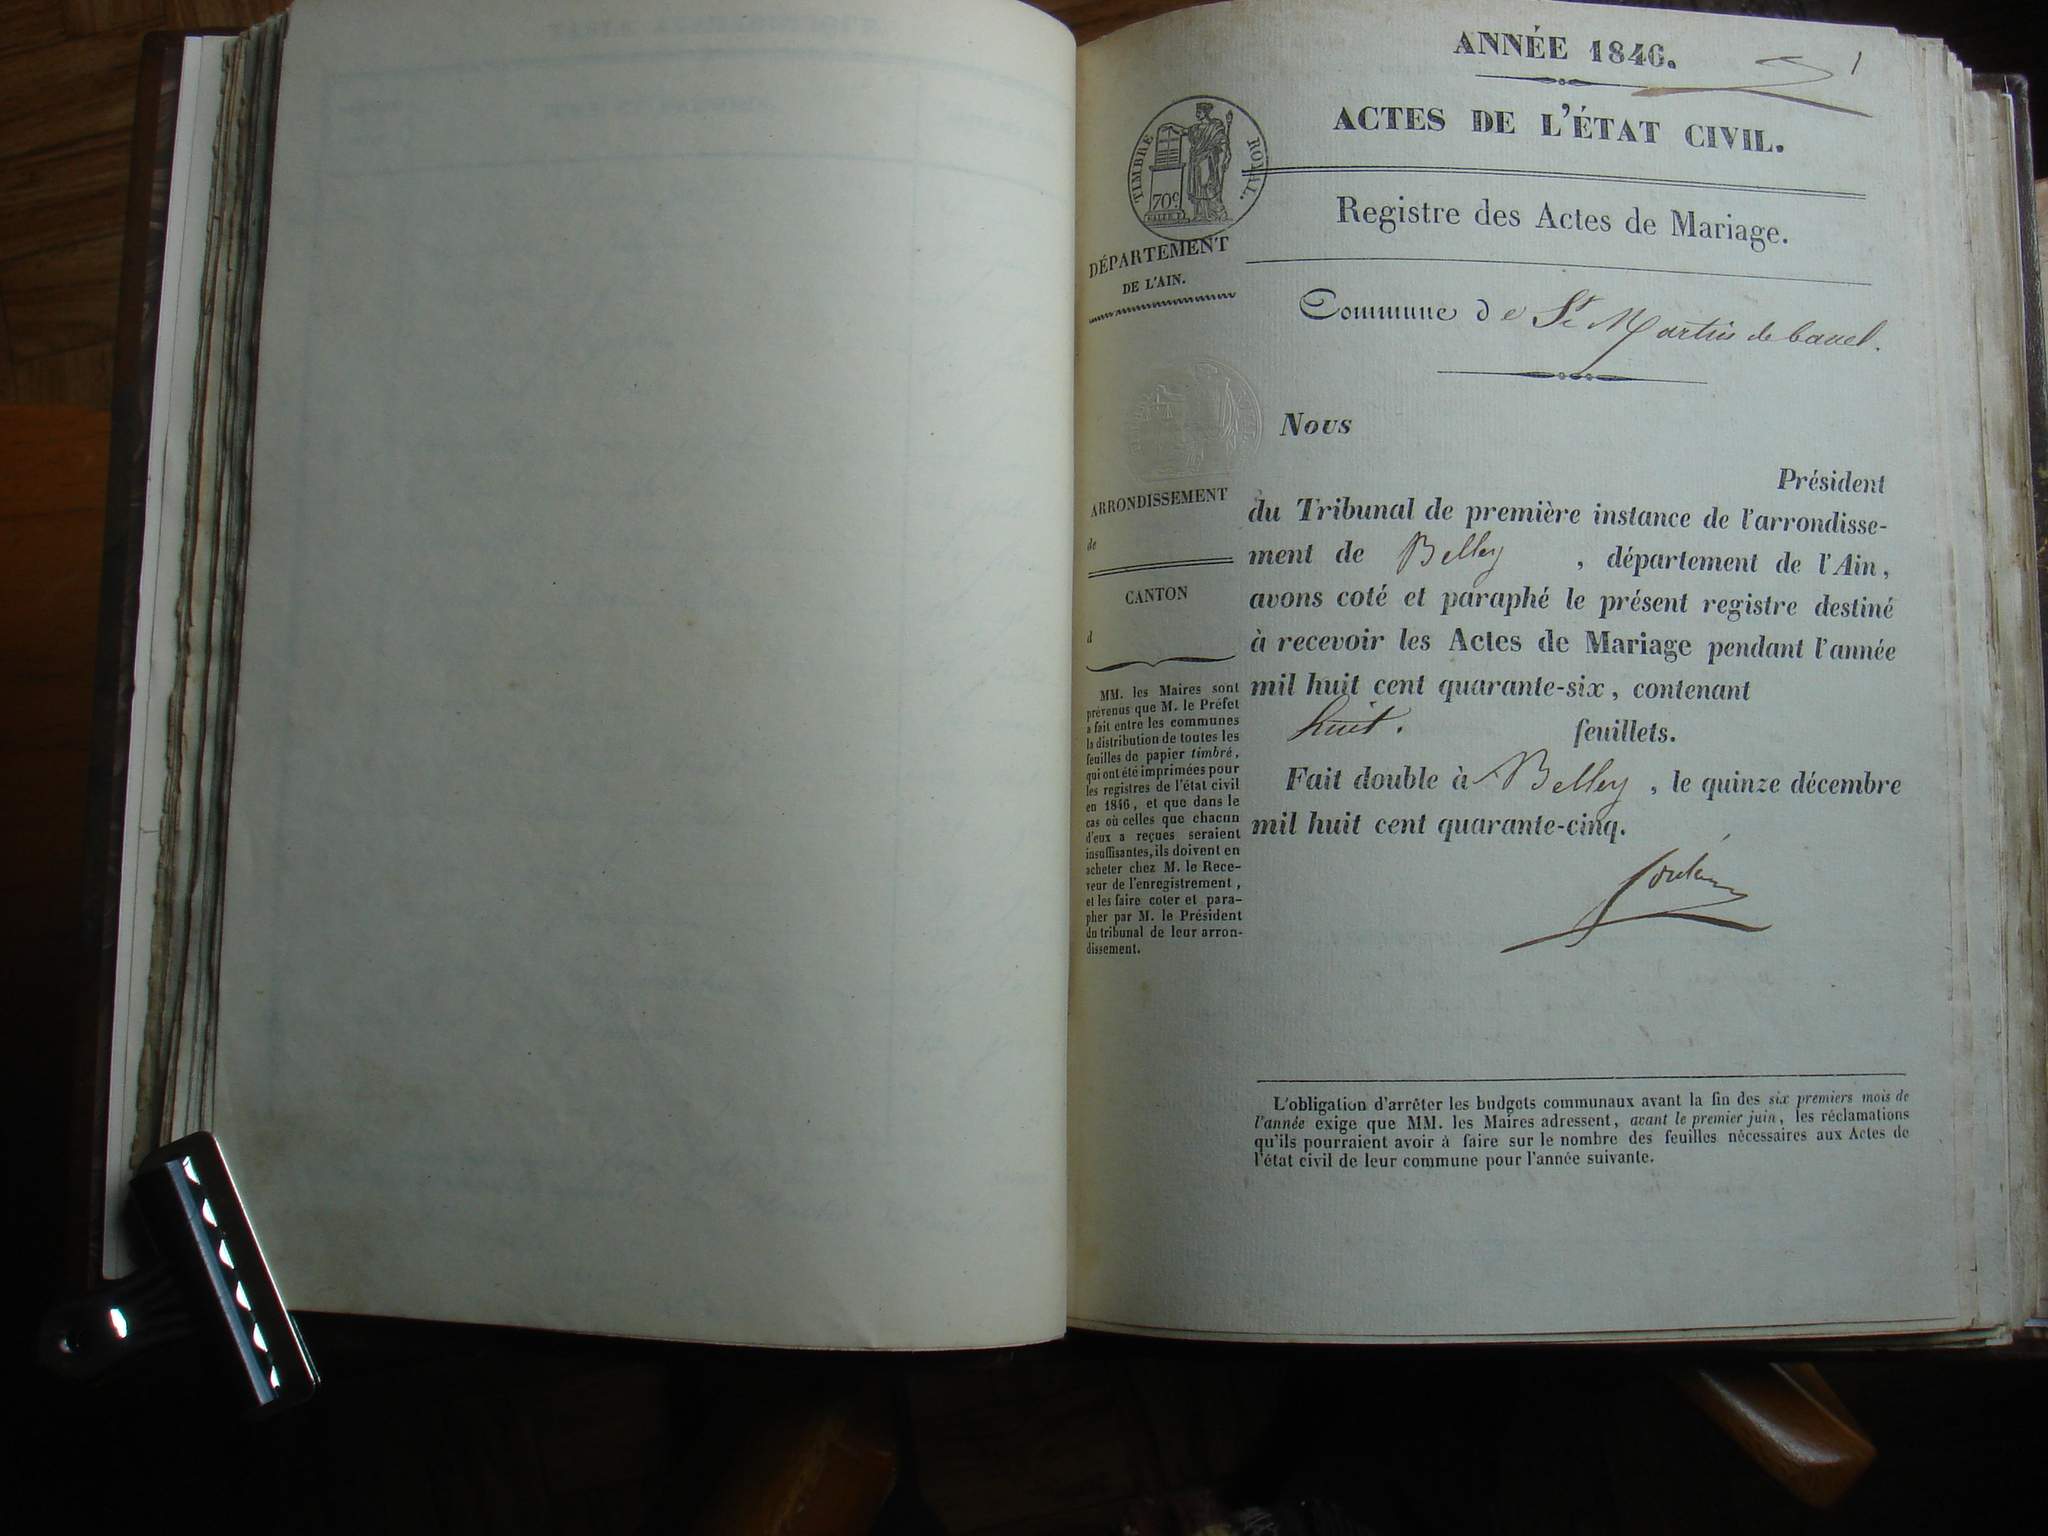 ANNÉE 1846.
1
ACTES DE L'ÉTAT CIVIL.
Registre des Actes de Mariage.
TIMBRE ROYAL.
70c
DÉPARTEMENT
DE L'AIN.
Commune de St Martin de bavel.
ARRONDISSEMENT
de
CANTON
d
MM. les Maires sont
prévenus que M. le Préfet
a fait entre les communes
la distribution de toutes les
feuilles de papier timbré,
qui ont été imprimées pour
les registres de l'état civil
en 1846, et que dans le
cas où celles que chacun
d'eux a reçues seraient
insuffisantes, ils doivent en
acheter chez M. le Rece-
veur de l'enregistrement,
et les faire coter et para-
pher par M. le Président
du tribunal de leur arron-
dissement.
Nous
Président
du Tribunal de première instance de l'arrondisse-
ment de Belley , département de l'Ain,
avons coté et paraphé le présent registre destiné
à recevoir les Actes de Mariage pendant l'année
mil huit cent quarante-six, contenant
huit. feuillets.
Fait double à Belley, le quinze décembre
mil huit cent quarante-cinq.
L'obligation d'arrêter les budgets communaux avant la fin des six premiers mois de
l'année exige que MM. les Maires adressent, avant le premier juin, les réclamations
qu'ils pourraient avoir à faire sur le nombre des feuilles nécessaires aux Actes de
l'état civil de leur commune pour l'année suivante.